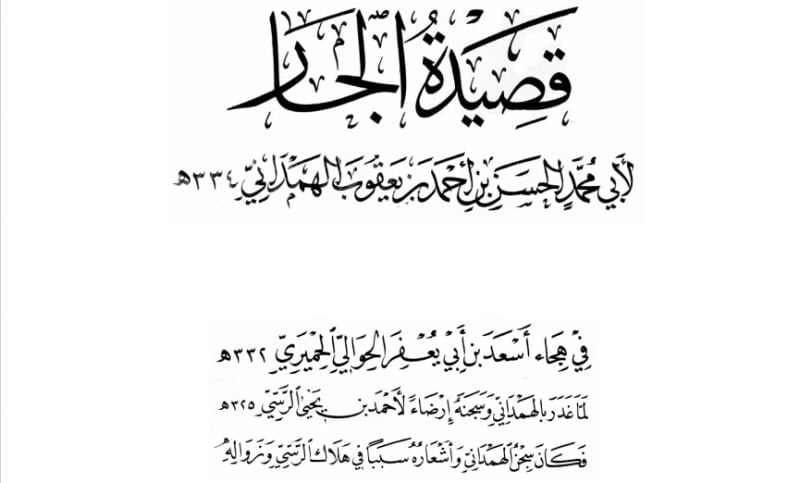 قَصِيْدَةُ الْجَارِ
لِأَبِي مُحَمَّدٍ الْحَسَنِ بْنِ أَحْمَدَ بْنِ يَعْقُوبَ الْهَمْدَانِيِّ ٣٣٤هـ
فِيْ هِجَاءِ أَسْعَدَ بْنِ أَبِيْ يُعْفِرَ الْحِوَالِيِّ الْحِمْيَرِيِّ ٣٣٢هـ
لَمَّا غَدَرَ بِالْهَمْدَانِيِّ وَسَجَنَهُ إِرْضَاءً لِأَحْمَدَ بْنِ يَحْيَى الرَّسِّيِّ ٣٢٥هـ
فَكَانَ سِجْنُ الْهَمْدَانِيِّ وَأَشْعَارُهُ سَبَبًا فِي هَلَاكِ الرَّسِّيِّ وَزَوَالِهِ